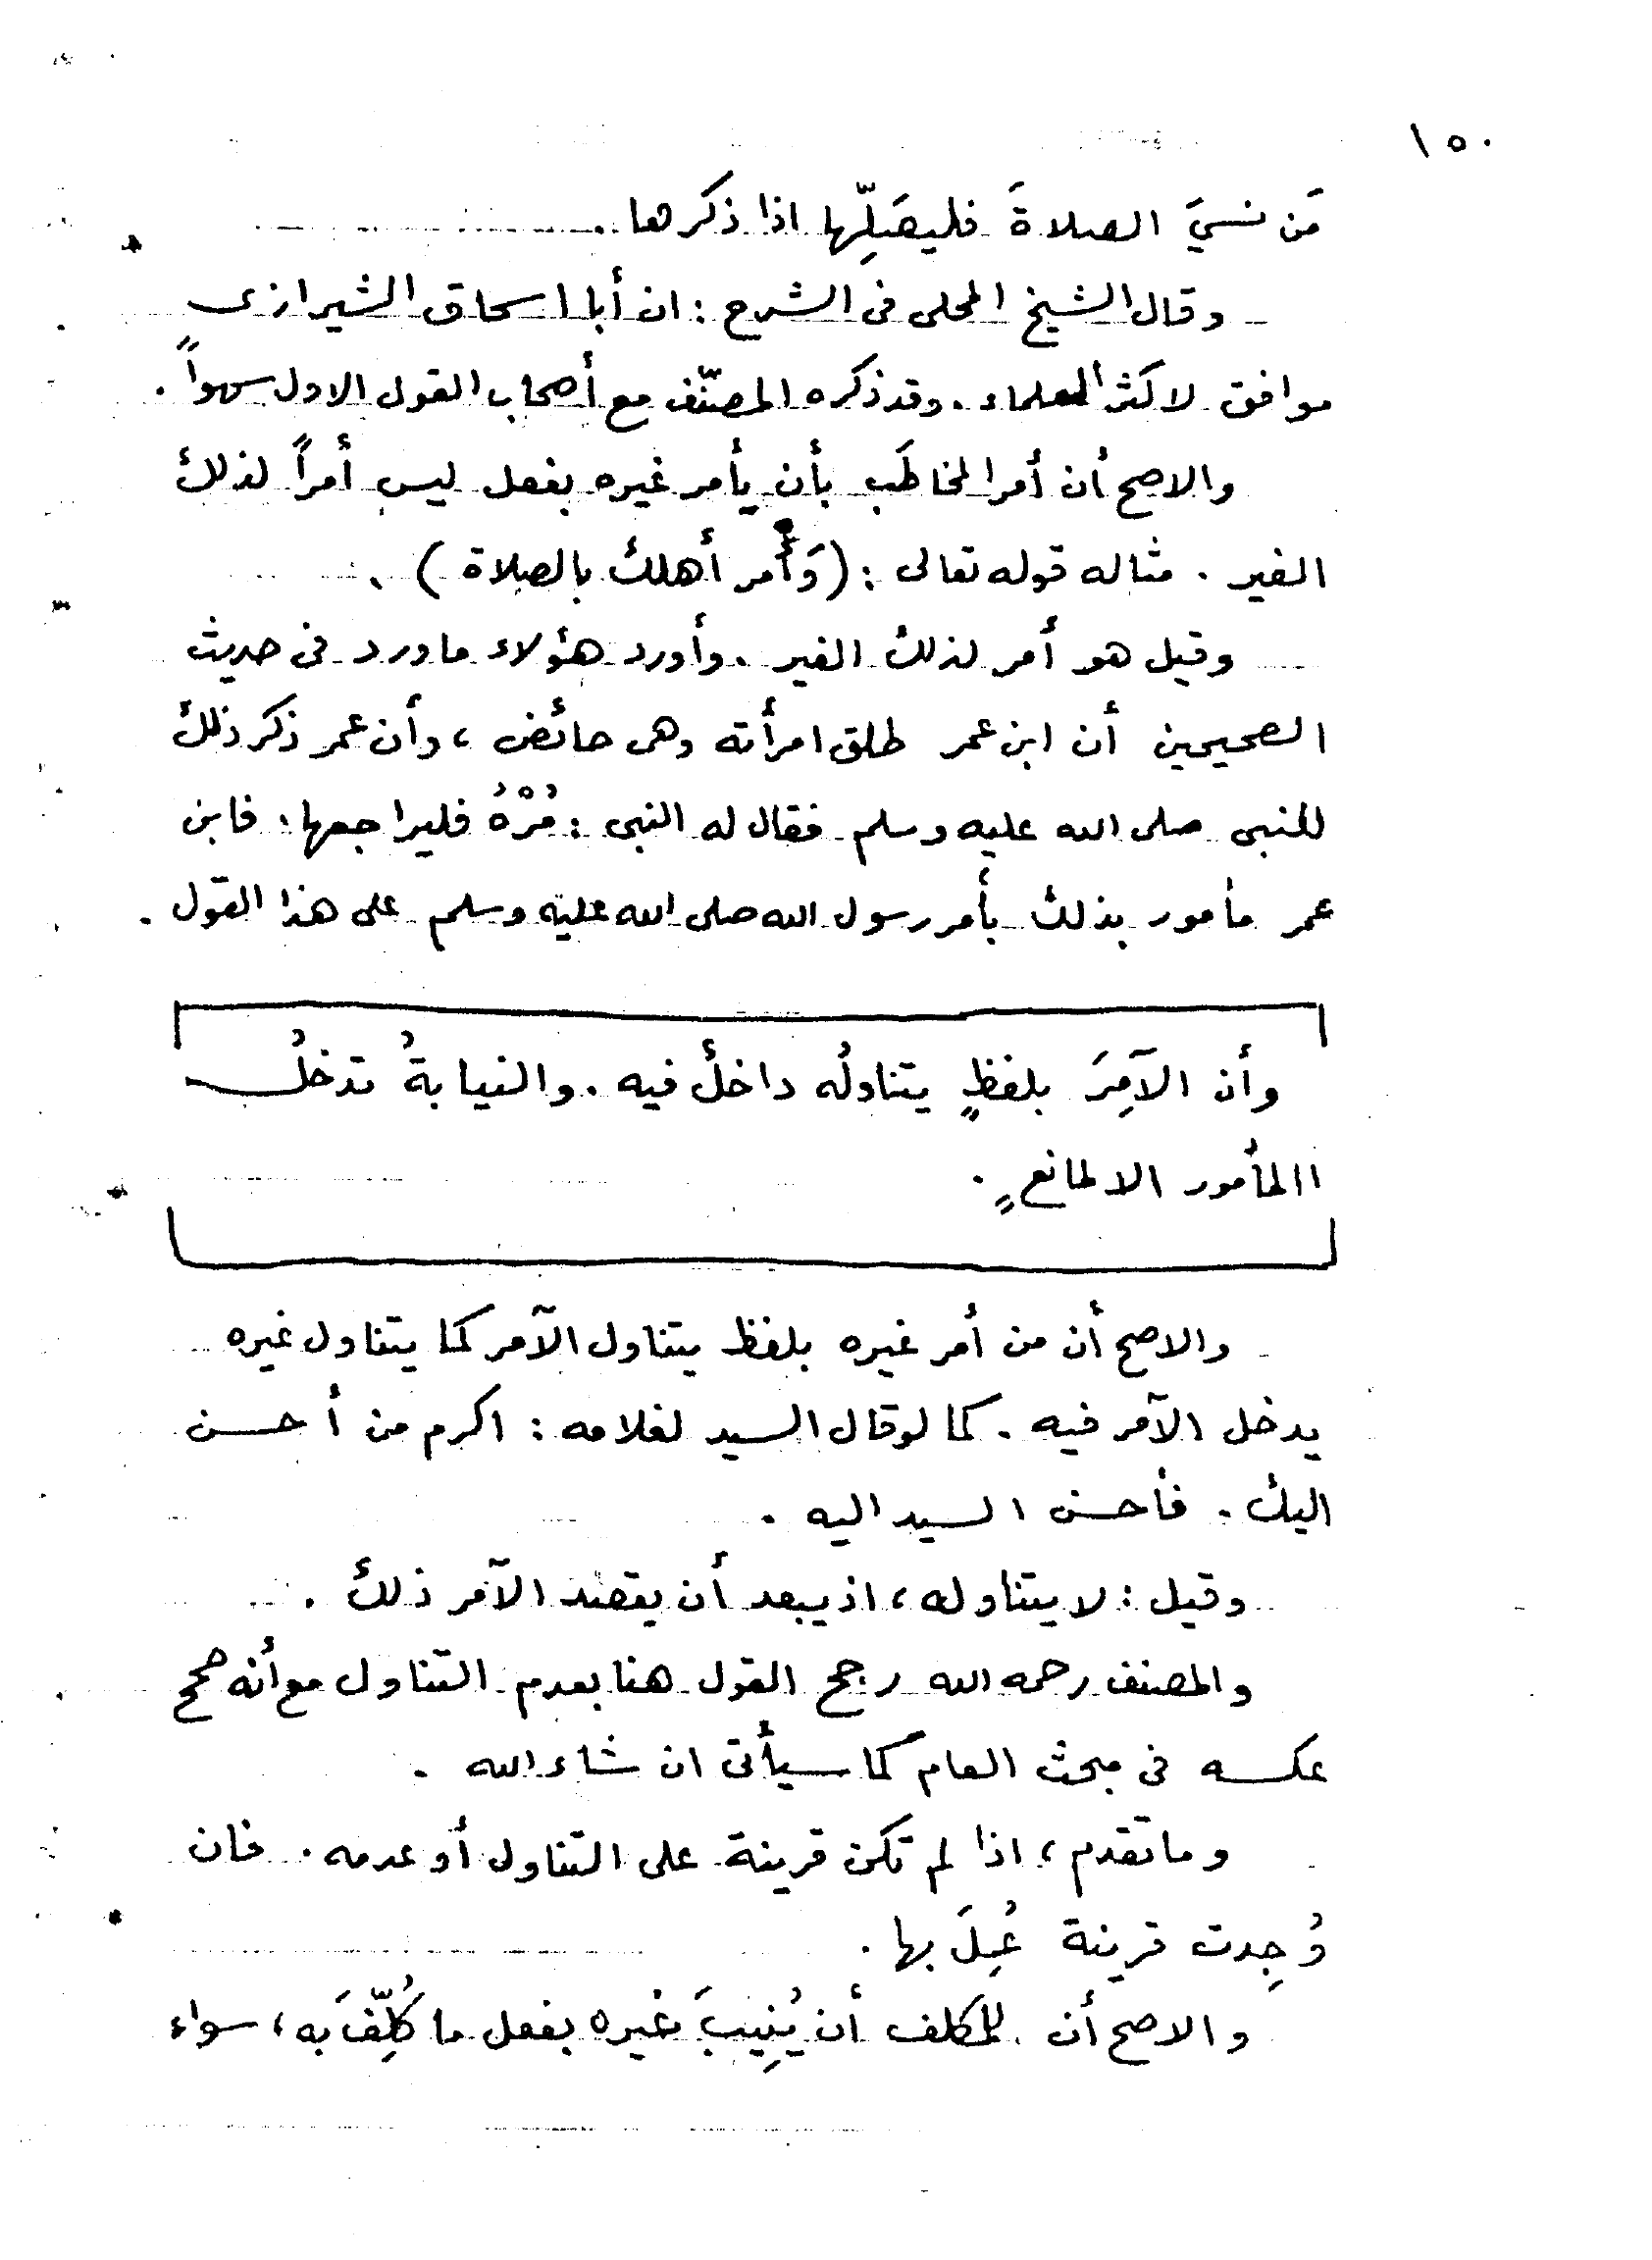 ١٥٠
مَن نسيَ الصلاةَ فليصَلِّها اذا ذكرها .
وقال الشيخ المحلى فى الشرح : ان أبا اسحاق الشيرازى
موافق لاكثر العلماء . وقد ذكره المصنّف مع أصحاب القول الاول سهواً .
والاصح أن أمر المخاطَب بأن يأمر غيره بفعل ليس أمراً لذلك
الغير . مثاله قوله تعالى : ( وَأْمر أهلك بالصلاة ) .
وقيل هو أمر لذلك الغير . وأورد هؤلاء ما ورد فى حديث
الصحيحين أن ابن عمر طلق امرأته وهى حائض ، وأن عمر ذكر ذلك
للنبى صلى الله عليه وسلم فقال له النبى : مُرْهُ فليراجعها . فابن
عمر مأمور بذلك بأمر رسول الله صلى الله عليه وسلم على هذا القول .
وأن الآمِرَ بلفظٍ يتناولُه داخلٌ فيه . والنيابةُ تدخلُ
االمأمور الا لمانعٍ .
والاصح أن من أمر غيره بلفظ يتناول الآمر كما يتناول غيره
يدخل الآمر فيه . كما لو قال السيد لغلامه : اكرم من أحسن
اليك . فأحسن السيد اليه .
وقيل : لا يتناوله ، اذ يبعد أن يقصد الآمر ذلك .
والمصنف رحمه الله رجح القول هنا بعدم التناول مع أنه صحح
عكسه فى مبحث العام كما سيأتى ان شاء الله .
وما تقدم ، اذا لم تكن قرينة على التناول أو عدمه . فان
وُجِدت قرينة عُمِلَ بها .
والاصح أن للمكلف أن يُنِيبَ غيره بفعل ما كُلِّفَ به ، سواء